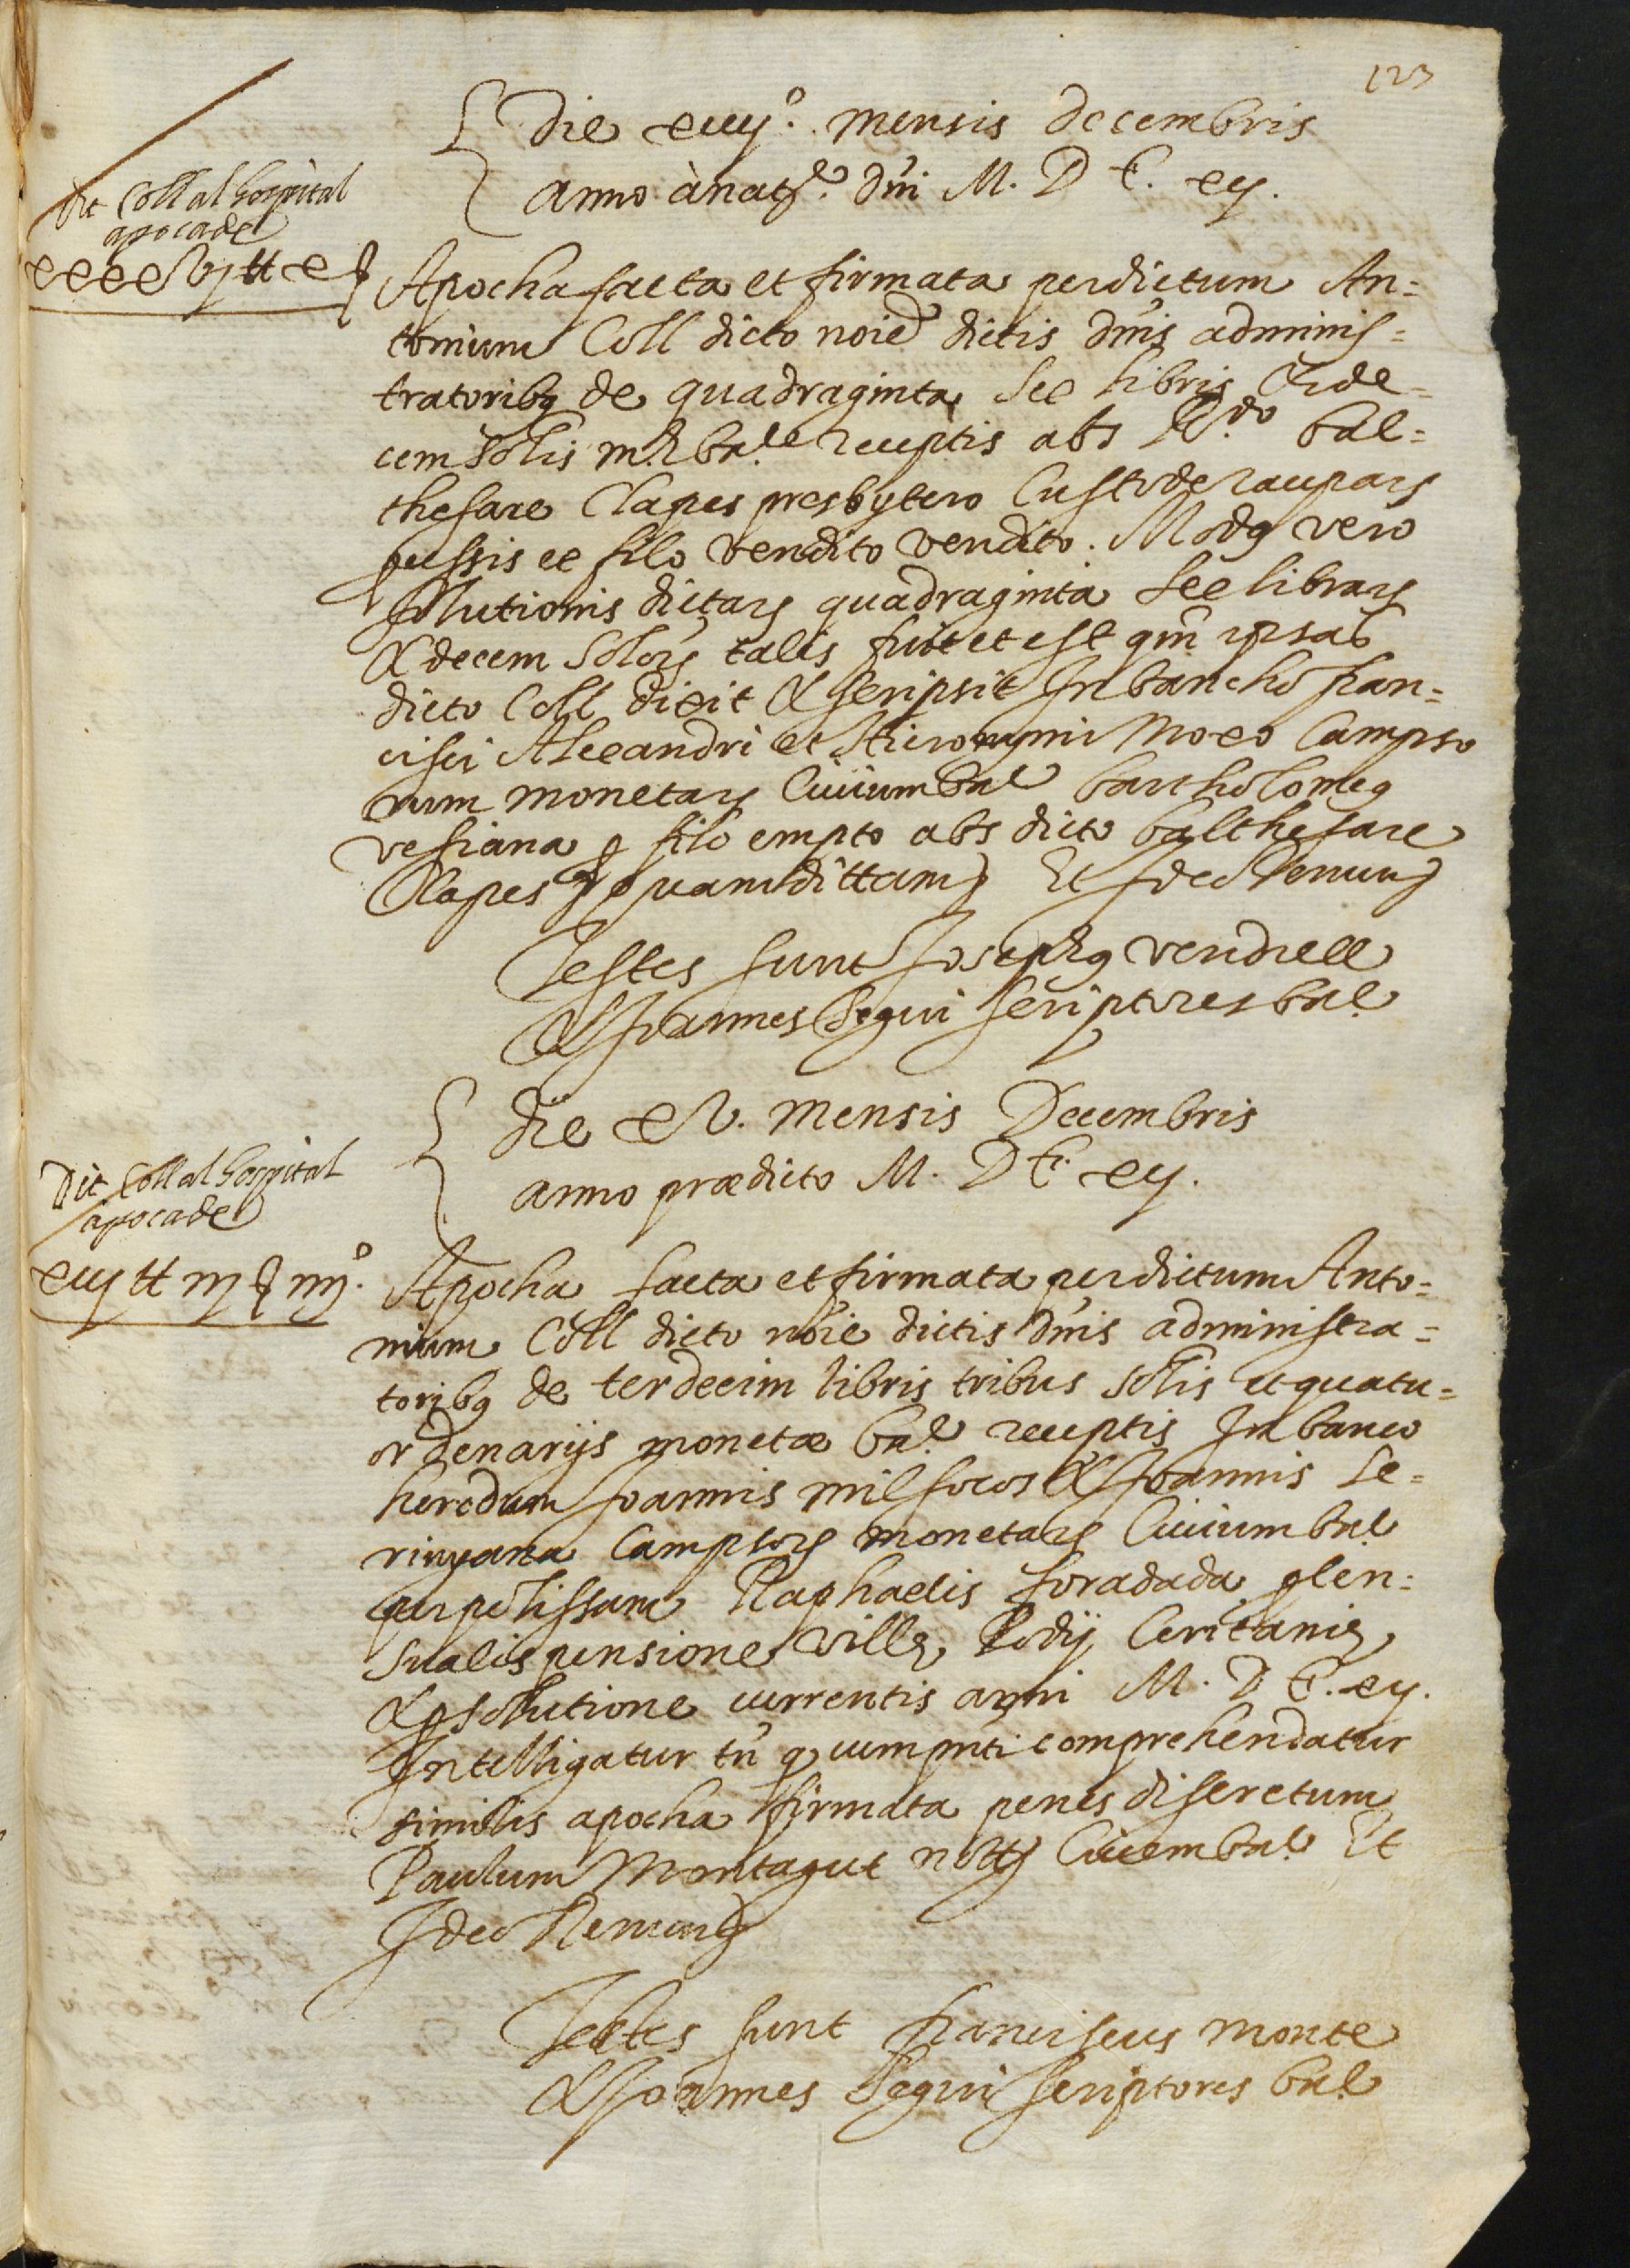 123
Die xiiij.º mensis decembris
anno à nat.e dñi M. D C. xij.
Dit Coll al hospital
apoca de
xxxxvj tt x s
Apocha facta et firmata per dictum An=
tonium Coll dicto noie dictis dñis adminis=
tratoribq de quadraginta sex libris & de=
cem solis m.e bar.e receptis abs R.do Bal=
thesare Clapes presbytero Custode
ex filo vendito vendito. Modq vero
solutionis dictarq quadraginta sex librarq
& decem solorq talis fuit et est qm̃ ipsas
dicto Coll dixit & scripsit In bancho fran=
cisci Alexandri et Hieronymi Moxo Campso
rum monetarq Ciuium bar.e bartholomeq
vesiana p filo empto abs dicto balthesare
Clapes dittam Et Ideo Renun
Testes sunt Josephq vendrell
& Joannes Segui scriptores bar.e
Die xv. mensis Decembris
anno prædicto M. D C. xij.
Dit Coll al hospital
apoca de
xiij tt iij s iiij.º
Apocha facta et firmata per dictum Anto=
nium Coll dicto noie dictis dñis administra=
toribq de terdecim libris tribus solis et quatu=
or denarijs monetæ bar.e receptis In banco
heredum Joannis milsocos & Joannis Se=
rinyana Campsorq monetarq Ciuium bar.e
per polissam Raphaelis foradada p cen=
sualis pensione villę Podij Ceritanię,
& p solutione currentis anni M. D C. xij.
Intelligatur tñ q cum pñti comprehendatur
similis apocha firmata penes discretum
Paulum Montagut notq Ciuem bar.e Et
Ideo Renun
Testes sunt franciscus monte
& Joannes Segui scriptores bar.e